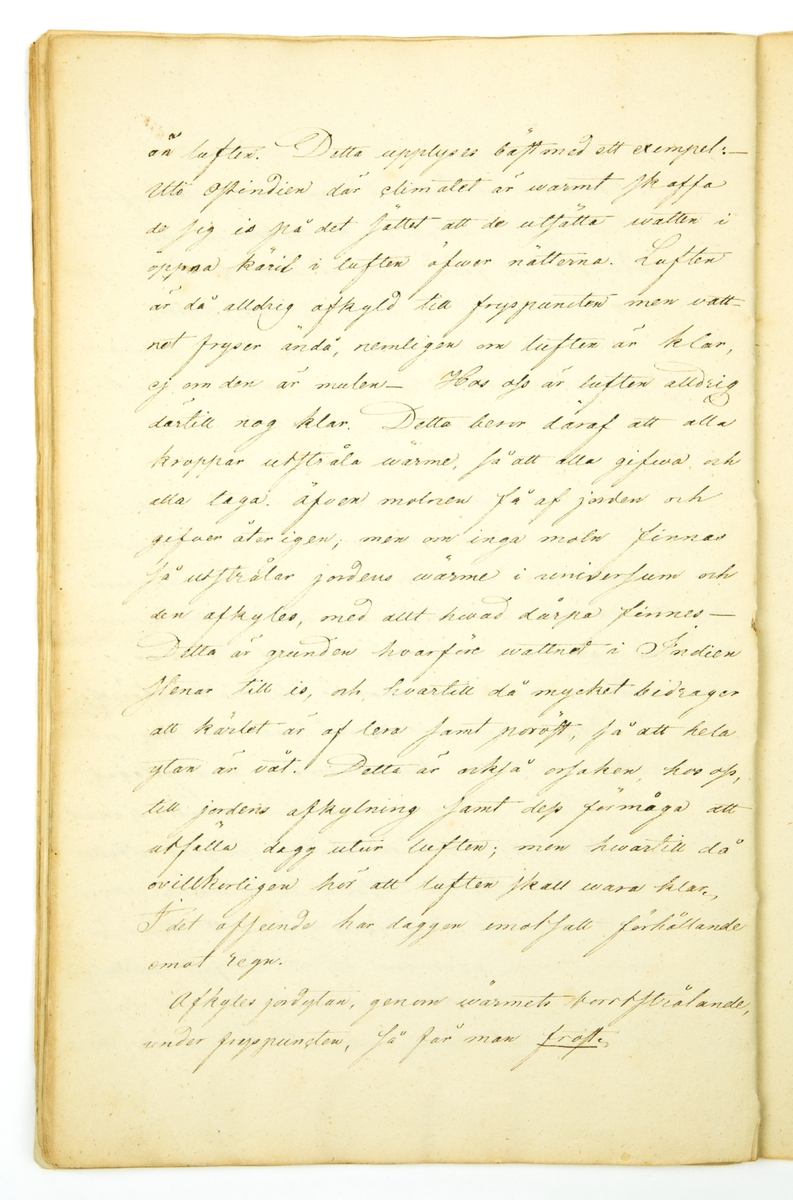 än luften. Detta upplyses bäst med ett exempel:—
Uti Ostindien där climatet är warmt skaffa
de sig is på det sättet att de utsätta watten i
öppna käril i luften öfwer nätterna. Luften
är då alldrig afkyld till fryspuncten men vatt-
net fryser ändå, nemligen om luften är klar,
ej om den är mulen— Hos oss är luften alldrig
därtill nog klar. Detta beror däraf att alla
kroppar utstråla wärme, så att alla gifwa och
alla taga. Äfven molnen få af jorden och
gifver åter igen; men om inga moln finnas
så utstrålar jordens wärme i universum och
den afkyles, med allt hwad därpå finnes—
Detta är grunden hvarföre wattnet i Indien
stenar till is, och hvartill då mycket bidrager
att kärlet är af lera samt poröst, så att hela
ytan är våt. Detta är också orsaken, hos oss,
till jordens afkylning samt dess förmåga att
utfälla dagg utur luften; men hwartill då
ovillkorligen hör att luften skall wara klar.
I det afseende har daggen motsatt förhållande
emot regn.
Afkyles jordytan, genom wärmets bortstrålande,
under fryspuncten, så får man frost.